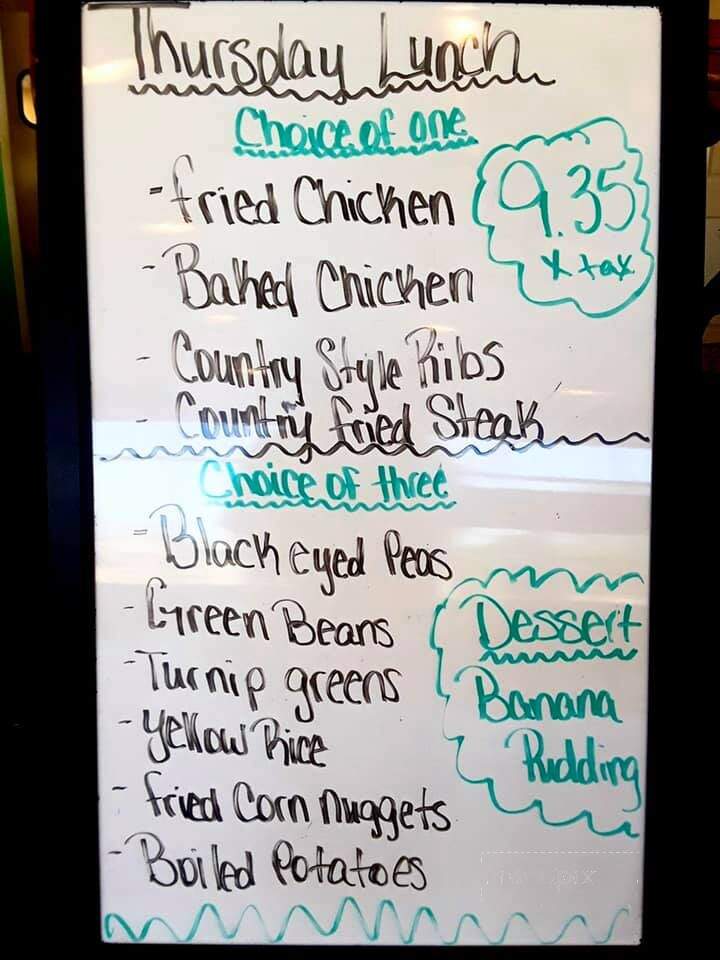 Thursday Lunch
Choice of one
- fried Chicken
9.35
x tax
- Baked Chicken
- Country Style Ribs
- Country fried Steak
Choice of three
- Black eyed Peas
- Green Beans
- Turnip greens
- Yellow Rice
- fried Corn nuggets
- Boiled Potatoes
Dessert
Banana
Pudding